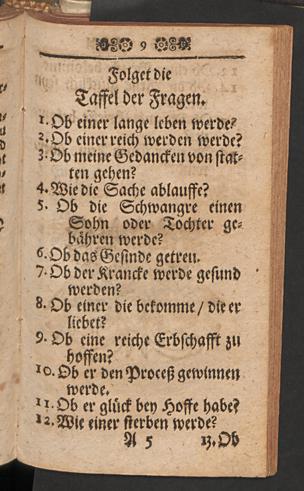 9
Folget die
Taffel der Fragen.
1. Ob einer lange leben werde?
2. Ob einer reich werden werde?
3. Ob meine Gedancken von stat-
ten gehen?
4. Wie die Sache ablauffe?
5. Ob die Schwangre einen
Sohn oder Tochter ge-
bähren werde?
6. Ob das Gesinde getreu.
7. Ob der Krancke werde gesund
werden?
8. Ob einer die bekomme / die er
liebet?
9. Ob eine reiche Erbschafft zu
hoffen?
10. Ob er den Proceß gewinnen
werde.
11. Ob er glück bey Hoffe habe?
12. Wie einer sterben werde?
A 5 13. Ob